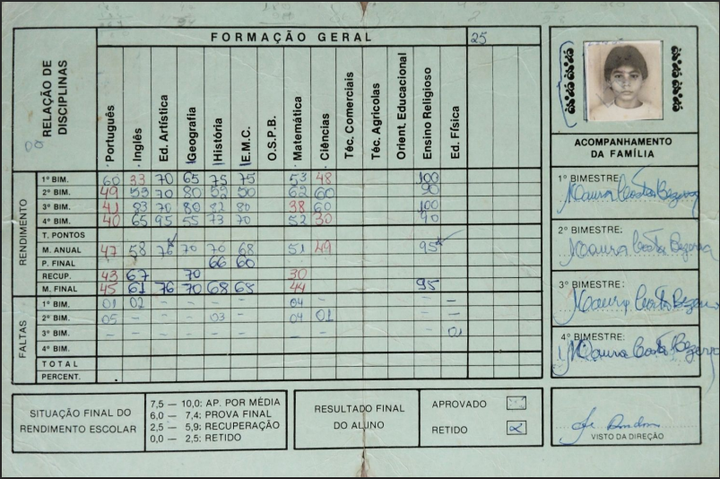 FORMAÇÃO GERAL 25
RELAÇÃO DE DISCIPLINAS
Português Inglês Ed. Artística Geografia História E.M.C. O.S.P.B. Matemática Ciências Téc. Comerciais Téc. Agrícolas Orient. Educacional Ensino Religioso Ed. Física
RENDIMENTO
1º BIM. 60 33 70 65 75 75 53 48 100
2º BIM. 49 53 70 80 52 50 62 60 90
3º BIM. 41 83 70 80 82 80 38 60 100
4º BIM. 40 65 95 55 73 70 52 30 90
T. PONTOS
M. ANUAL 47 58 76 70 70 68 51 49 95
P. FINAL 66 60
RECUP. 43 67 70 30
M. FINAL 45 61 76 70 68 65 44 95
FALTAS
1º BIM. 01 02 – – – – 04 – –
2º BIM. 05 – – – 03 – 04 01 –
3º BIM. – – – – – – – – 01
4º BIM.
TOTAL
PERCENT.
ACOMPANHAMENTO
DA FAMÍLIA
1º BIMESTRE:
Costa Bezerra
2º BIMESTRE:
Costa Bezerra
3º BIMESTRE:
Costa Bezerra
4º BIMESTRE:
Costa Bezerra
VISTO DA DIREÇÃO
SITUAÇÃO FINAL DO
RENDIMENTO ESCOLAR
7,5 — 10,0: AP. POR MÉDIA
6,0 — 7,4: PROVA FINAL
2,5 — 5,9: RECUPERAÇÃO
0,0 — 2,5: RETIDO
RESULTADO FINAL
DO ALUNO
APROVADO
RETIDO